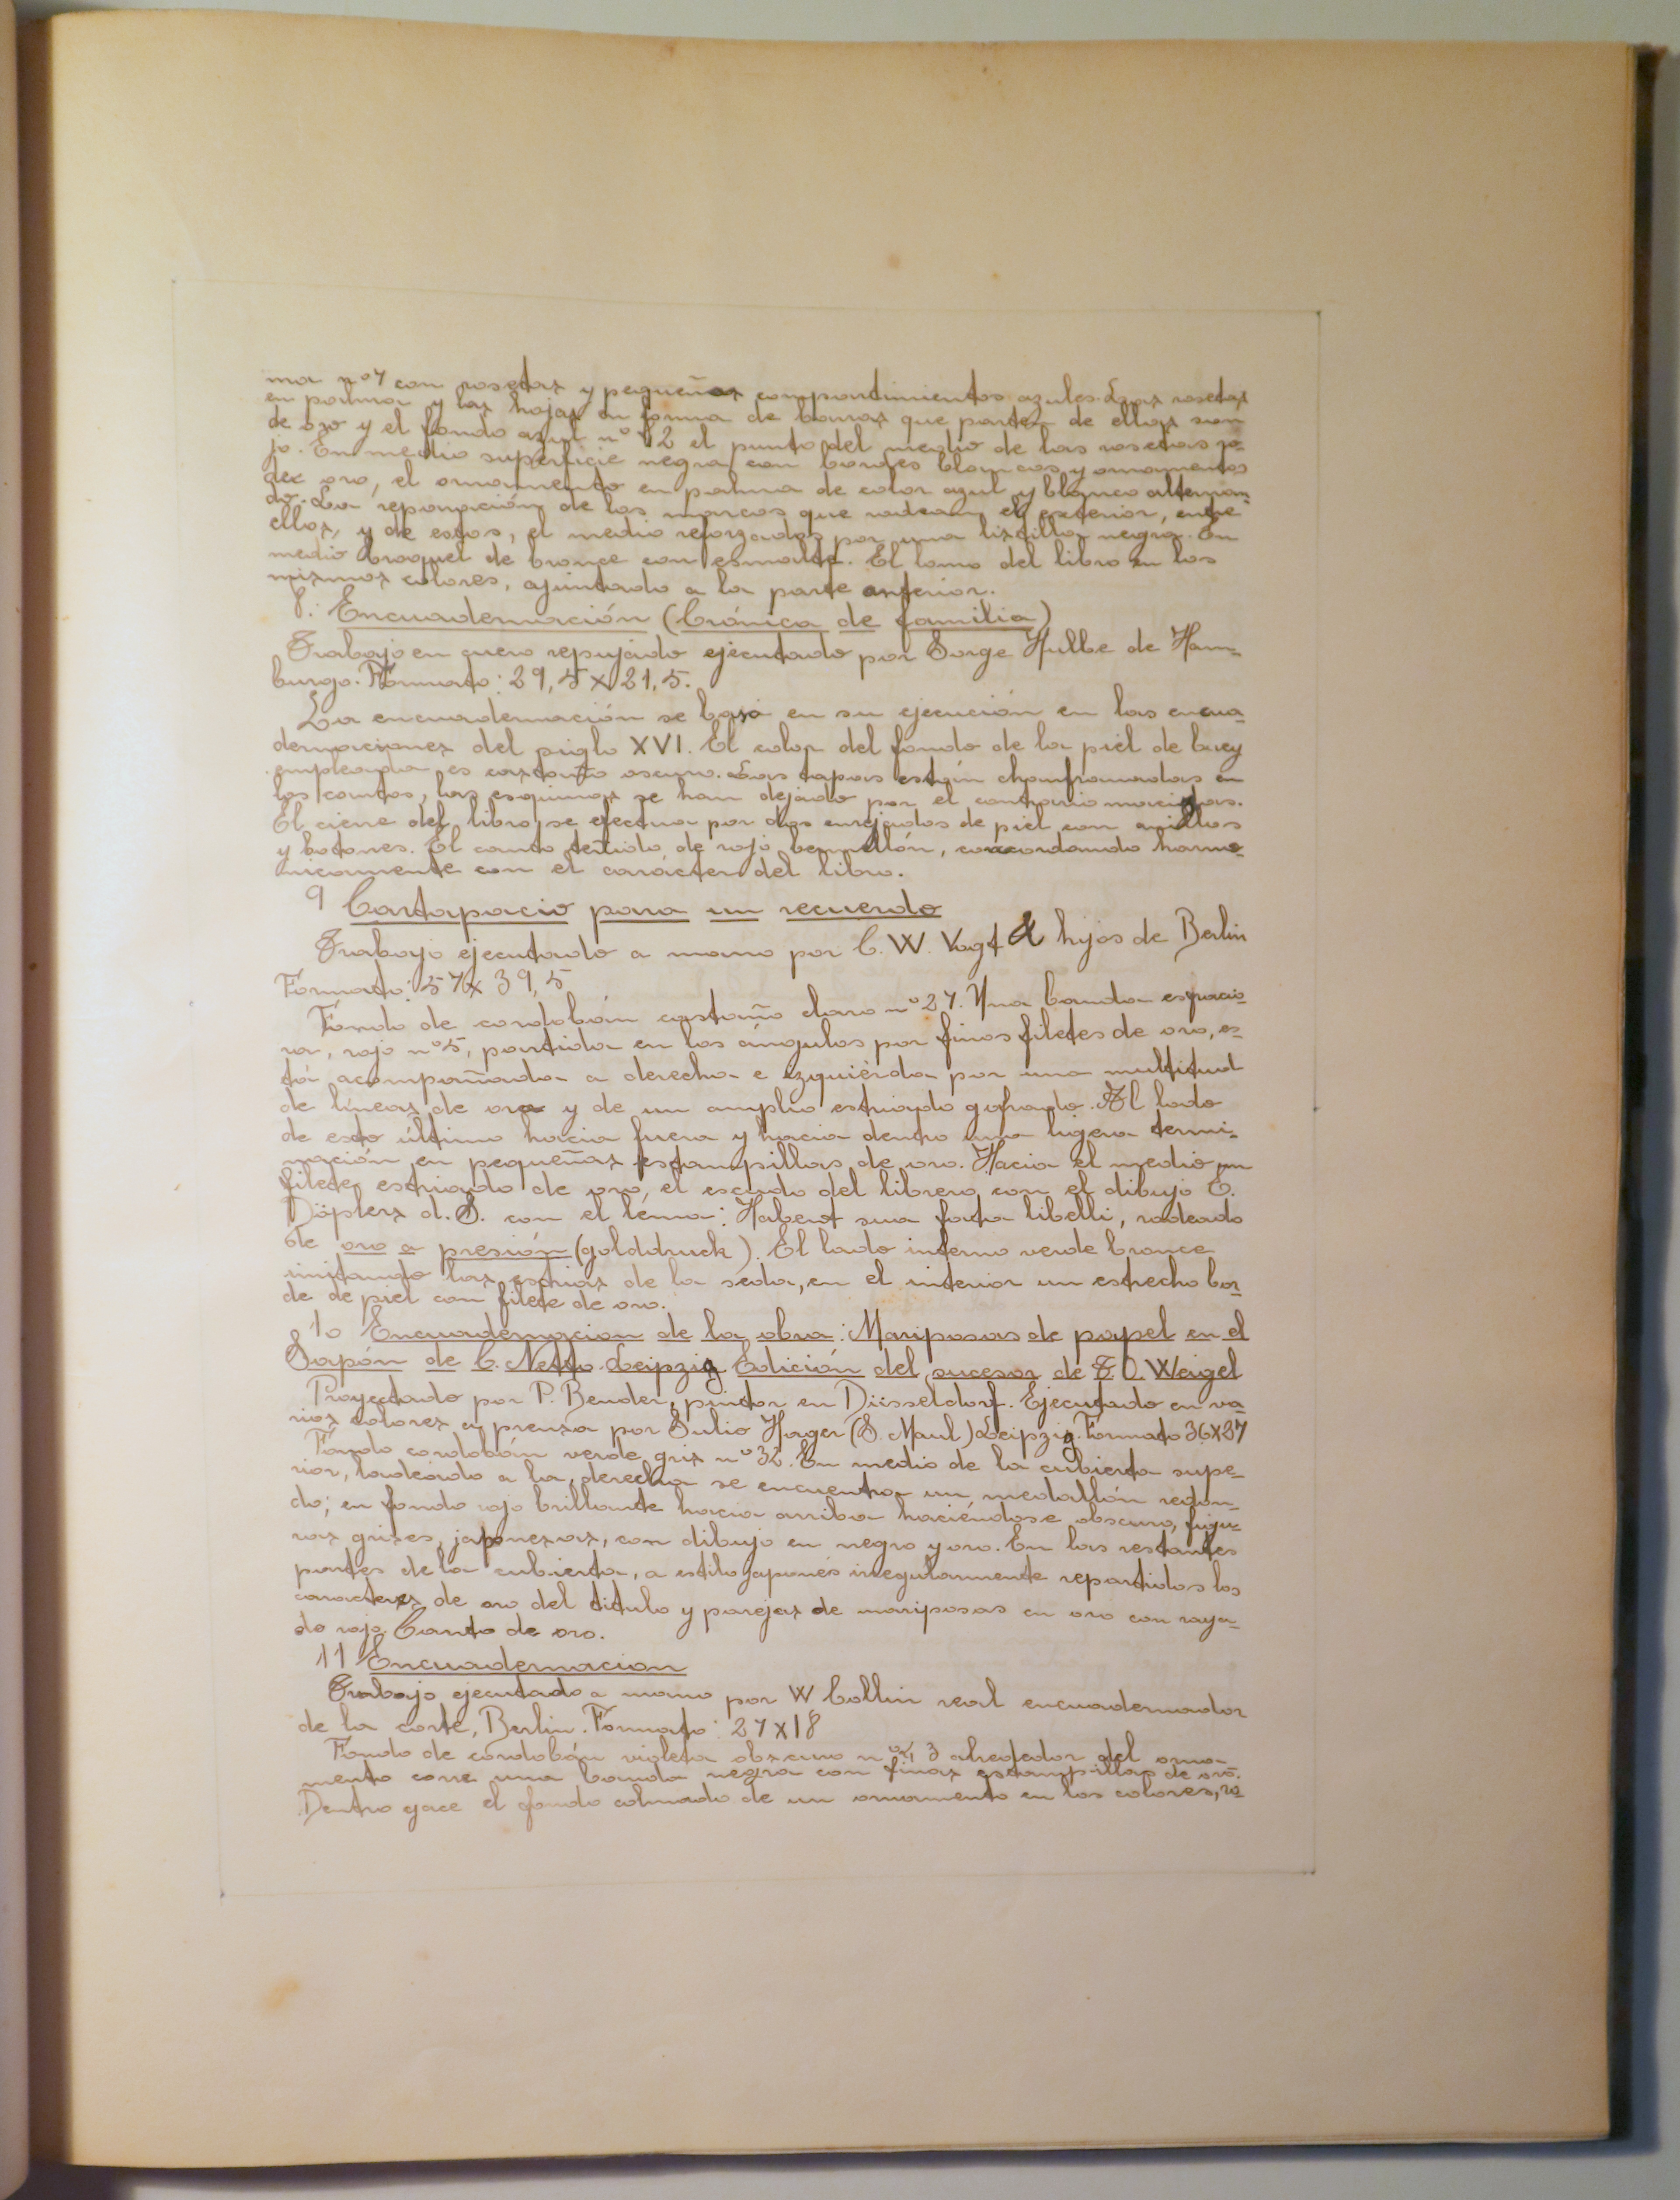 ma nº 7 con rosetas y pequeñas compartimientos azules. Las rosetas
en palma y las hojas en forma de barras que parten de ellas son
de oro y el fondo azul nº 12 el punto del medio de las rosetas ro-
jo. En medio superficie negra con bordes blancos y ornamentos
de oro, el ornamento en palma de color azul y blanco alternan-
do. La reparación de los marcos que rodean el exterior, entre
ellos, y de estos, el medio reforzados por una listilla negra. En
medio broquel de bronce con esmalte. El lomo del libro en los
mismos colores, ajuntado a la parte anterior.
8. Encuadernación (Crónica de familia)
Trabajo en cuero repujado ejecutado por Jorge Hulbe de Ham-
burgo. Formato: 29,5 x 21,5.
La encuadernación se basa en su ejecución en las encua-
dernaciones del siglo XVI. El color del fondo de la piel de buey
empleada es castaño oscuro. Las tapas están chanframadas en
los cantos, las esquinas se han dejado por el contrario macizas.
El cierre del libro se efectua por dos enrejados de piel con anillos
y botones. El canto teñido de rojo bermellón, concordando harmo-
nicamente con el carácter del libro.
9 Cartapacio para un recuerdo
Trabajo ejecutado a mano por C. W. Vogt & hijos de Berlin
Formato: 57 x 39,5
Fondo de cordobán castaño claro nº 27. Una banda espacio-
sa, rojo nº 5, partida en los ángulos por finos filetes de oro, es-
tá acompañada a derecha e izquierda por una multitud
de líneas de oro y de un amplio estriado gofrado. Al lado
de esto último hacia fuera y hacia dentro una ligera termi-
nación en pequeñas estampillas de oro. Hacia el medio un
filete estriado de oro, el escudo del librero con el dibujo E.
Döplers d. J. con el lema: Habent sua fata libelli, rodeado
de oro a presión (golddruck). El lado interno verde bronce
imitando las estrias de la seda, en el interior un estrecho bor-
de de piel con filete de oro.
10 Encuadernacion de la obra: Mariposas de papel en el
Japón de C. Netto. Leipzig Edición del sucesor de T. O. Weigel
Proyectado por P. Bender, pintor en Düsseldorf. Ejecutado en va-
rios colores en prensa por Julio Hager (J. Maul) Leipzig. Formato 36x27
Fondo cordobán verde gris nº 32. En medio de la cubierta supe-
rior, ladeado a la derecha se encuentra un medallón redon-
do; en fondo rojo brillante hacia arriba haciéndose obscuro, figu-
ras grises, japonesas, con dibujo en negro y oro. En las restantes
partes de la cubierta, a estilo japonés irregularmente repartidos los
caracteres de oro del titulo y parejas de mariposas en oro con raya-
do rojo. Canto de oro.
11 Encuadernacion
Trabajo ejecutado a mano por W Collin real encuadernador
de la corte, Berlin. Formato: 27x18
Fondo de cordobán violeta obscuro nº 3 alrededor del orna-
mento corre una banda negra con finas estampillas de oro.
Dentro yace el fondo colmado de un ornamento en los colores, ro-